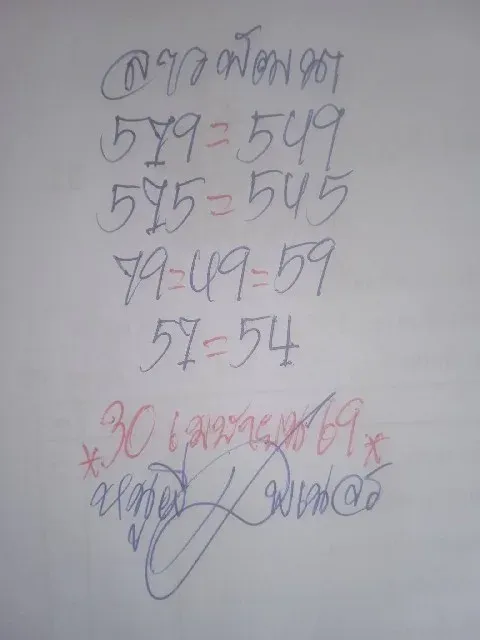 ลาวพัฒนา
579=549
575=545
79=49=59
57=54
*30 เมษายน 69*
หนูมี